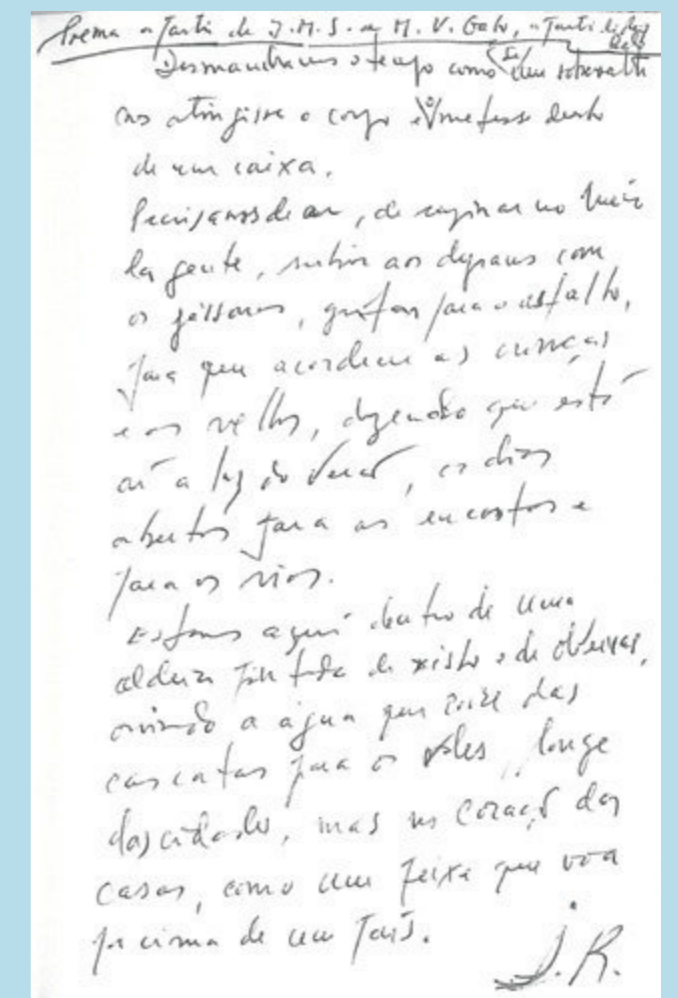 Poema a partir de J.M.S. a M. V. Galo, a partir de
Desmanchamos o tempo como se um sobressalto
nos atingisse o corpo e o metesse dentro
de uma caixa.
Precisamos de ar, de respirar no meio
da gente, subir aos degraus com
os pássaros, gritar para o asfalto,
para que acordem as crianças
e os velhos, dizendo que está
aí a luz do verão, os dias
abertos para as encostas e
para os rios.
Estamos aqui dentro de uma
aldeia pintada de xisto e de
ouvindo a água que corre das
cascatas para os vales, longe
das cidades, mas no coração das
casas, como um peixe que voa
por cima de um país.
J.R.